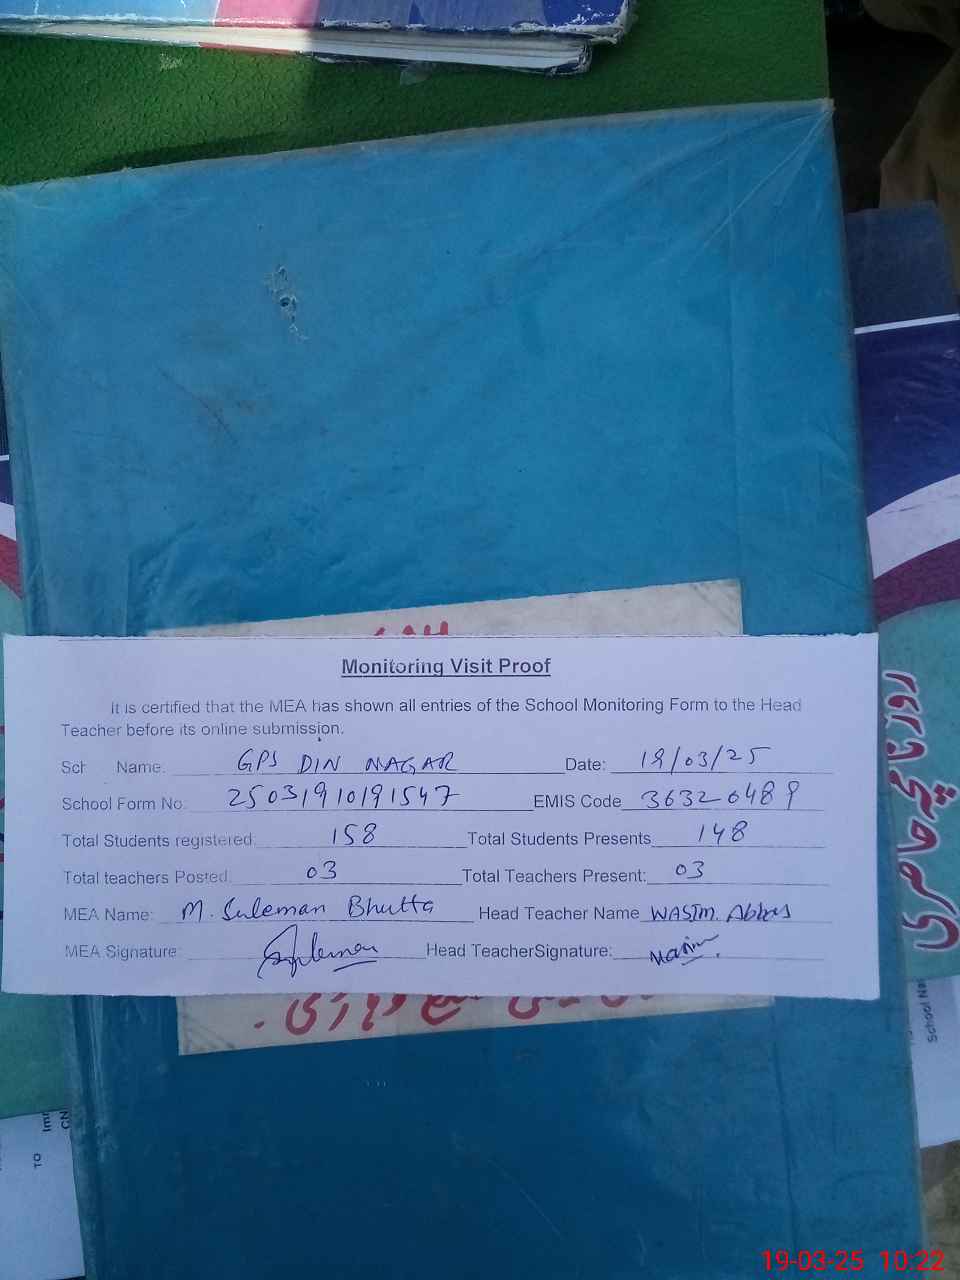 Monitoring Visit Proof
It is certified that the MEA has shown all entries of the School Monitoring Form to the Head
Teacher before its online submission.
Sch Name: GPS DIN NAGAR Date: 19/03/25
School Form No: 25031910191547 EMIS Code 36320489
Total Students registered: 158 Total Students Presents 148
Total teachers Posted: 03 Total Teachers Present: 03
MEA Name: M. Suleman Bhutta Head Teacher Name WASIM. Abbas
MEA Signature: Suleman Head TeacherSignature:
School Na
TO
Imr
CN
19-03-25 10:22